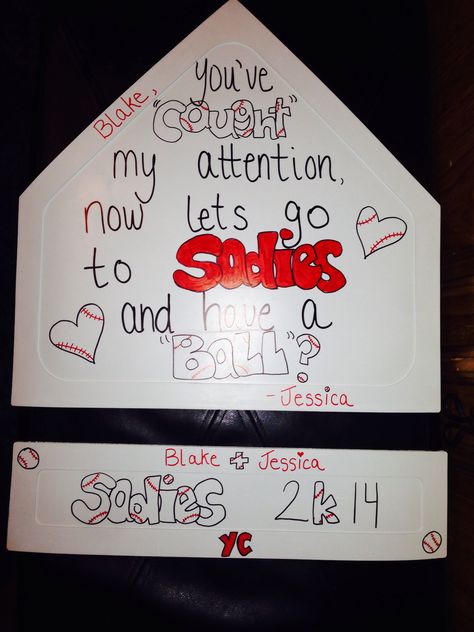 Blake,
you've
"Caught"
my attention,
now lets go
to Sadies
and have a
"Ball"?
-Jessica
Blake + Jessica
Sadies 2k14
YC